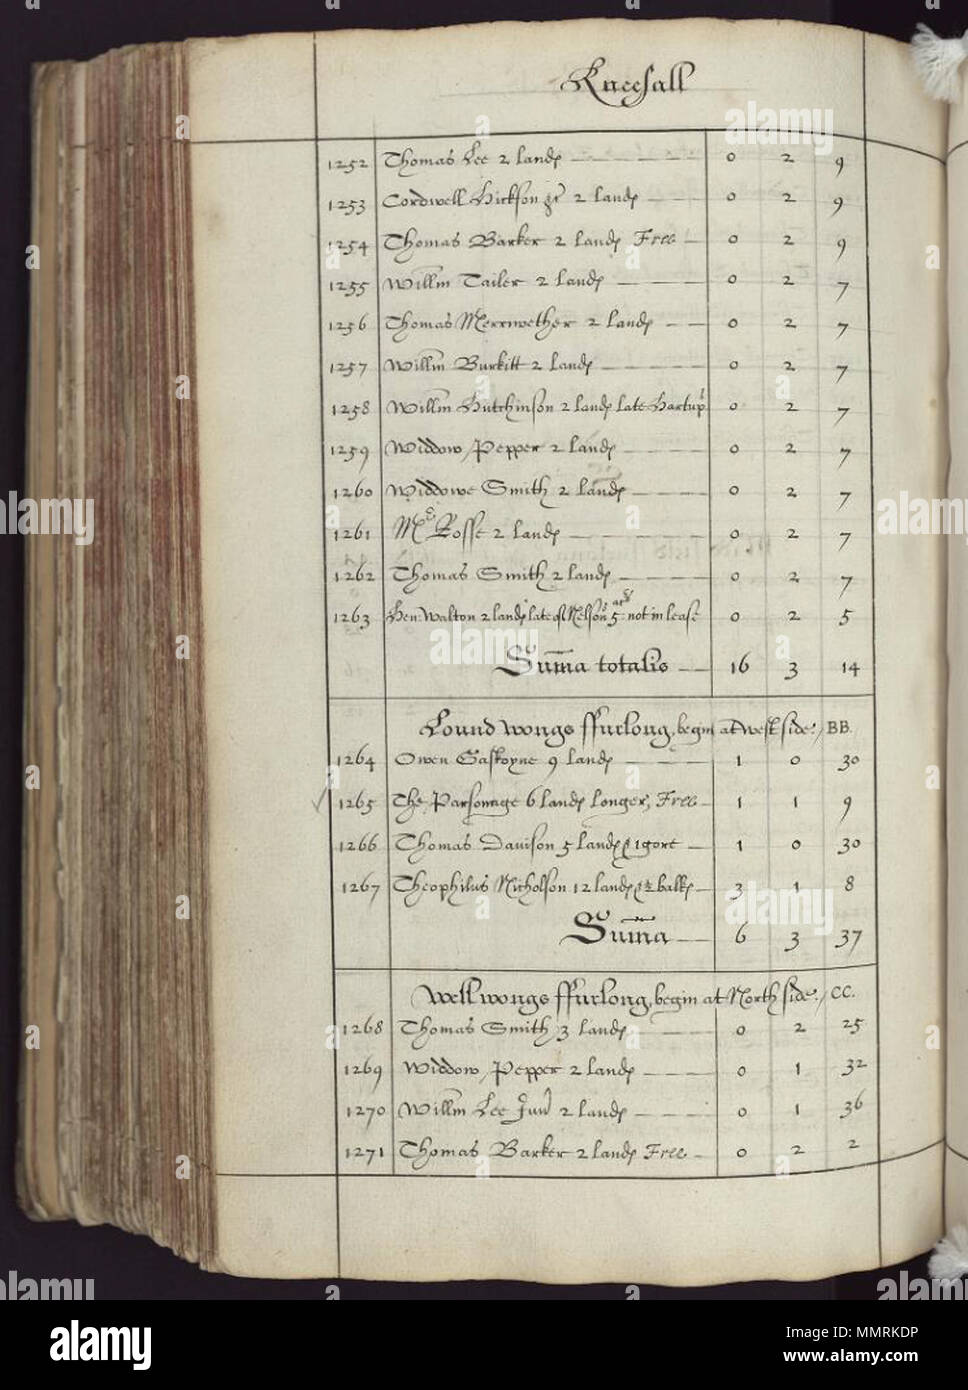 Kneesall
1252 Thomas Lee 2 landꝭ 0 2 9
1253 Cordwell Hickson 2 landꝭ 0 2 9
1254 Thomas Barker 2 landꝭ Free 0 2 9
1255 Willm Tailer 2 landꝭ 0 2 7
1256 Thomas Merrwether 2 landꝭ 0 2 7
1257 Willm Burkitt 2 landꝭ 0 2 7
1258 Willm Hutchinson 2 landꝭ late Hartupꝭ 0 2 7
1259 Widdow Pepper 2 landꝭ 0 2 7
1260 Widdowe Smith 2 landꝭ 0 2 7
1261 Mrs Rosse 2 landꝭ 0 2 7
1262 Thomas Smith 2 landꝭ 0 2 7
1263 Hen: Walton 2 landꝭ late Nelsons 5 not in lease 0 2 5
Summa totalis 16 3 14
Lound wongs ffurlong, begin at West side. / BB.
1264 Owen Gaskoyne 9 landꝭ 1 0 30
1265 The Parsonage 6 landꝭ longer, Free 1 1 9
1266 Thomas Davison 5 landꝭ & 1 gore 1 0 30
1267 Theophilus Nicholson 12 landꝭ & 2 balkꝭ 3 1 8
Summa 6 3 37
Well wongs ffurlong, begin at North side. / CC.
1268 Thomas Smith 3 landꝭ 0 2 25
1269 Widdow Pepper 2 landꝭ 0 1 32
1270 Willm Lee Jun 2 landꝭ 0 1 36
1271 Thomas Barker 2 landꝭ Free 0 2 2
alamy
Image ID: MMRKDP
www.alamy.com